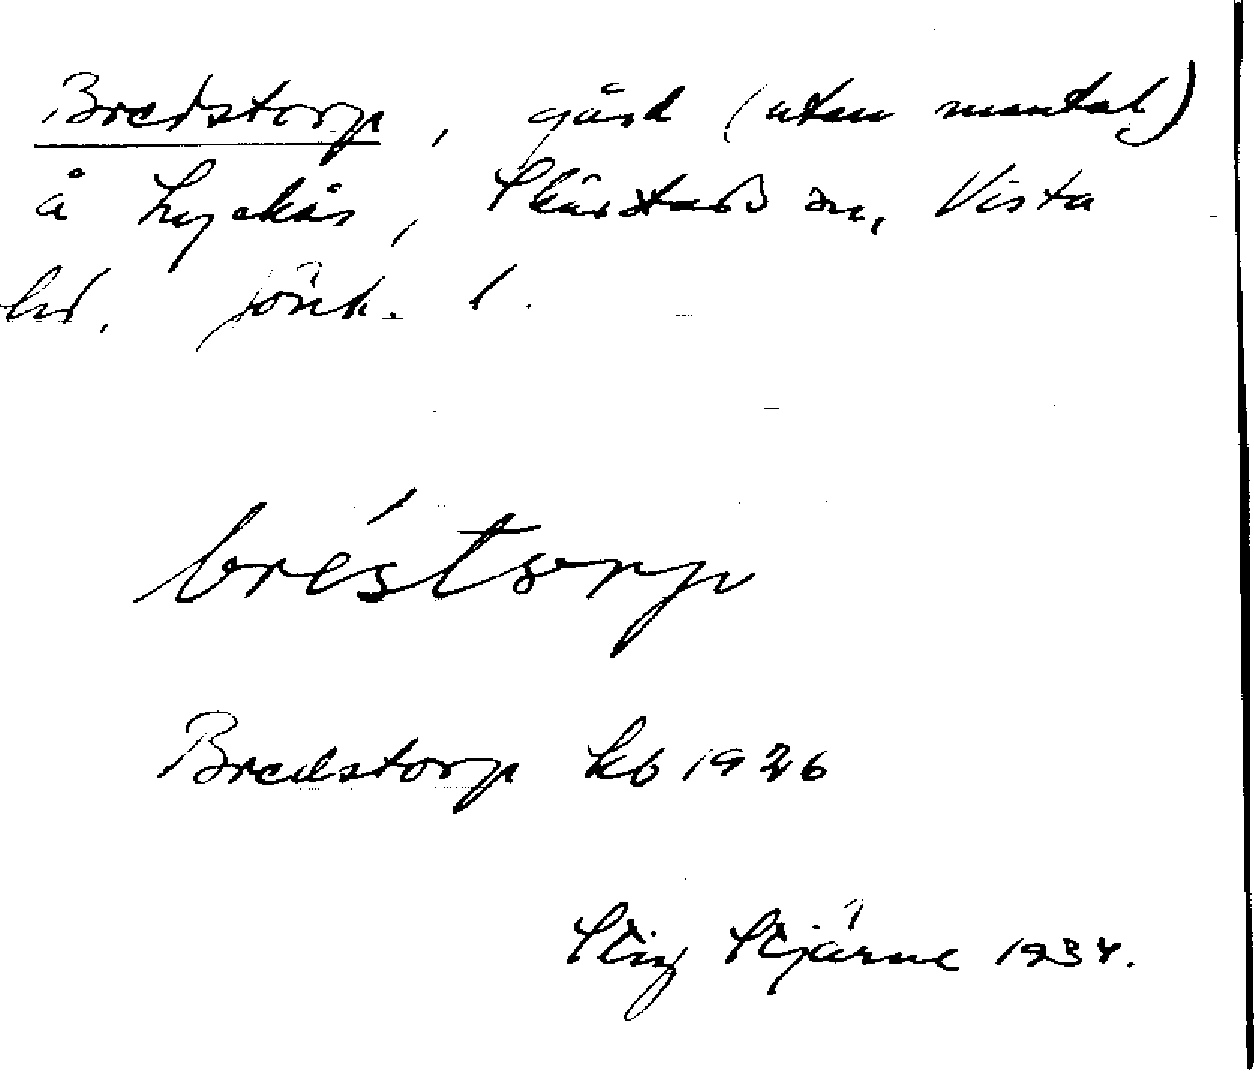 Bredstorp, gård (utan mantal)
å Lyckås, Skärstads sn, Vista
hd. Jönk. l.
bréstorp
Bredstorp kb 1926
Stig Stjärne 1934.